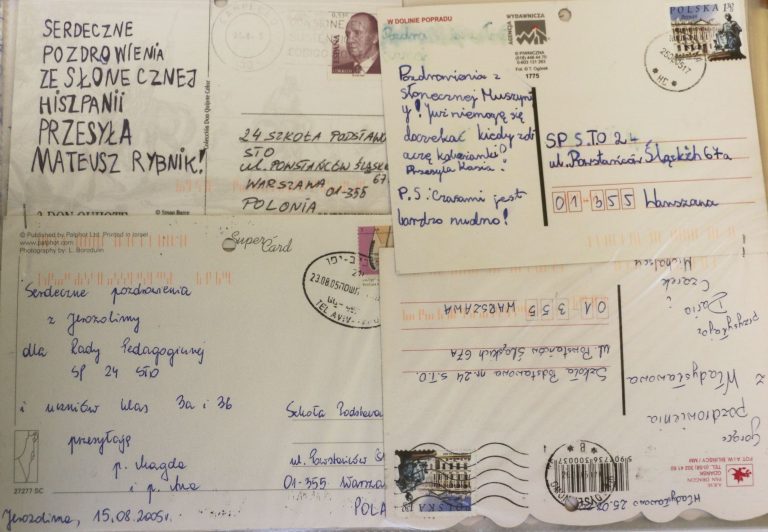 SERDECZNE
POZDROWIENIA
ZE SŁONECZNEJ
HISZPANII
PRZESYŁA
MATEUSZ RYBNIK!
24 SZKOŁA PODSTAWO
STO
UL. POWSTAŃCÓW ŚLĄSK
67
WARSZAWA 01-355
POLONIA
W DOLINIE POPRADU
AGENCJA WYDAWNICZA
PIWNICZNA
1775
Pozdrowienia z
słonecznej Muszyny
y! Już niemogę się
doczekać kiedy zob
aczę koleżanki!
Przesyła Kasia!
P.S. Czasami jest
bardzo nudno!
POLSKA
SP STO 24
ul. Powstańców Śląskich 67a
01-355 Warszawa
© Published by Palphot Ltd. Printed in Israel
www.palphot.com
Photography by: L. Borodulin
Super Card
23.08.05
TEL AVIV
Serdeczne pozdrowienia
z Jerozolimy
dla Rady Pedagogicznej
SP 24 STO
i uczniów klas 3a i 3b
przesyłają
p. Magda
i p. Ana
Jerozolima, 15.08.2005r.
27277 SC
Szkoła Podstawo
ul. Powstańców Ś
01-355 Warsza
POLA
Gorące
pozdrowienia
z Władysławowa
przysyłają
Daria i
Czarek
Szkoła Podstawowa nr. 24 S.T.O.
ul. Powstańców Śląskich 67A
01 355 WARSZAWA
Władysławowo 25.0
GDAŃSK